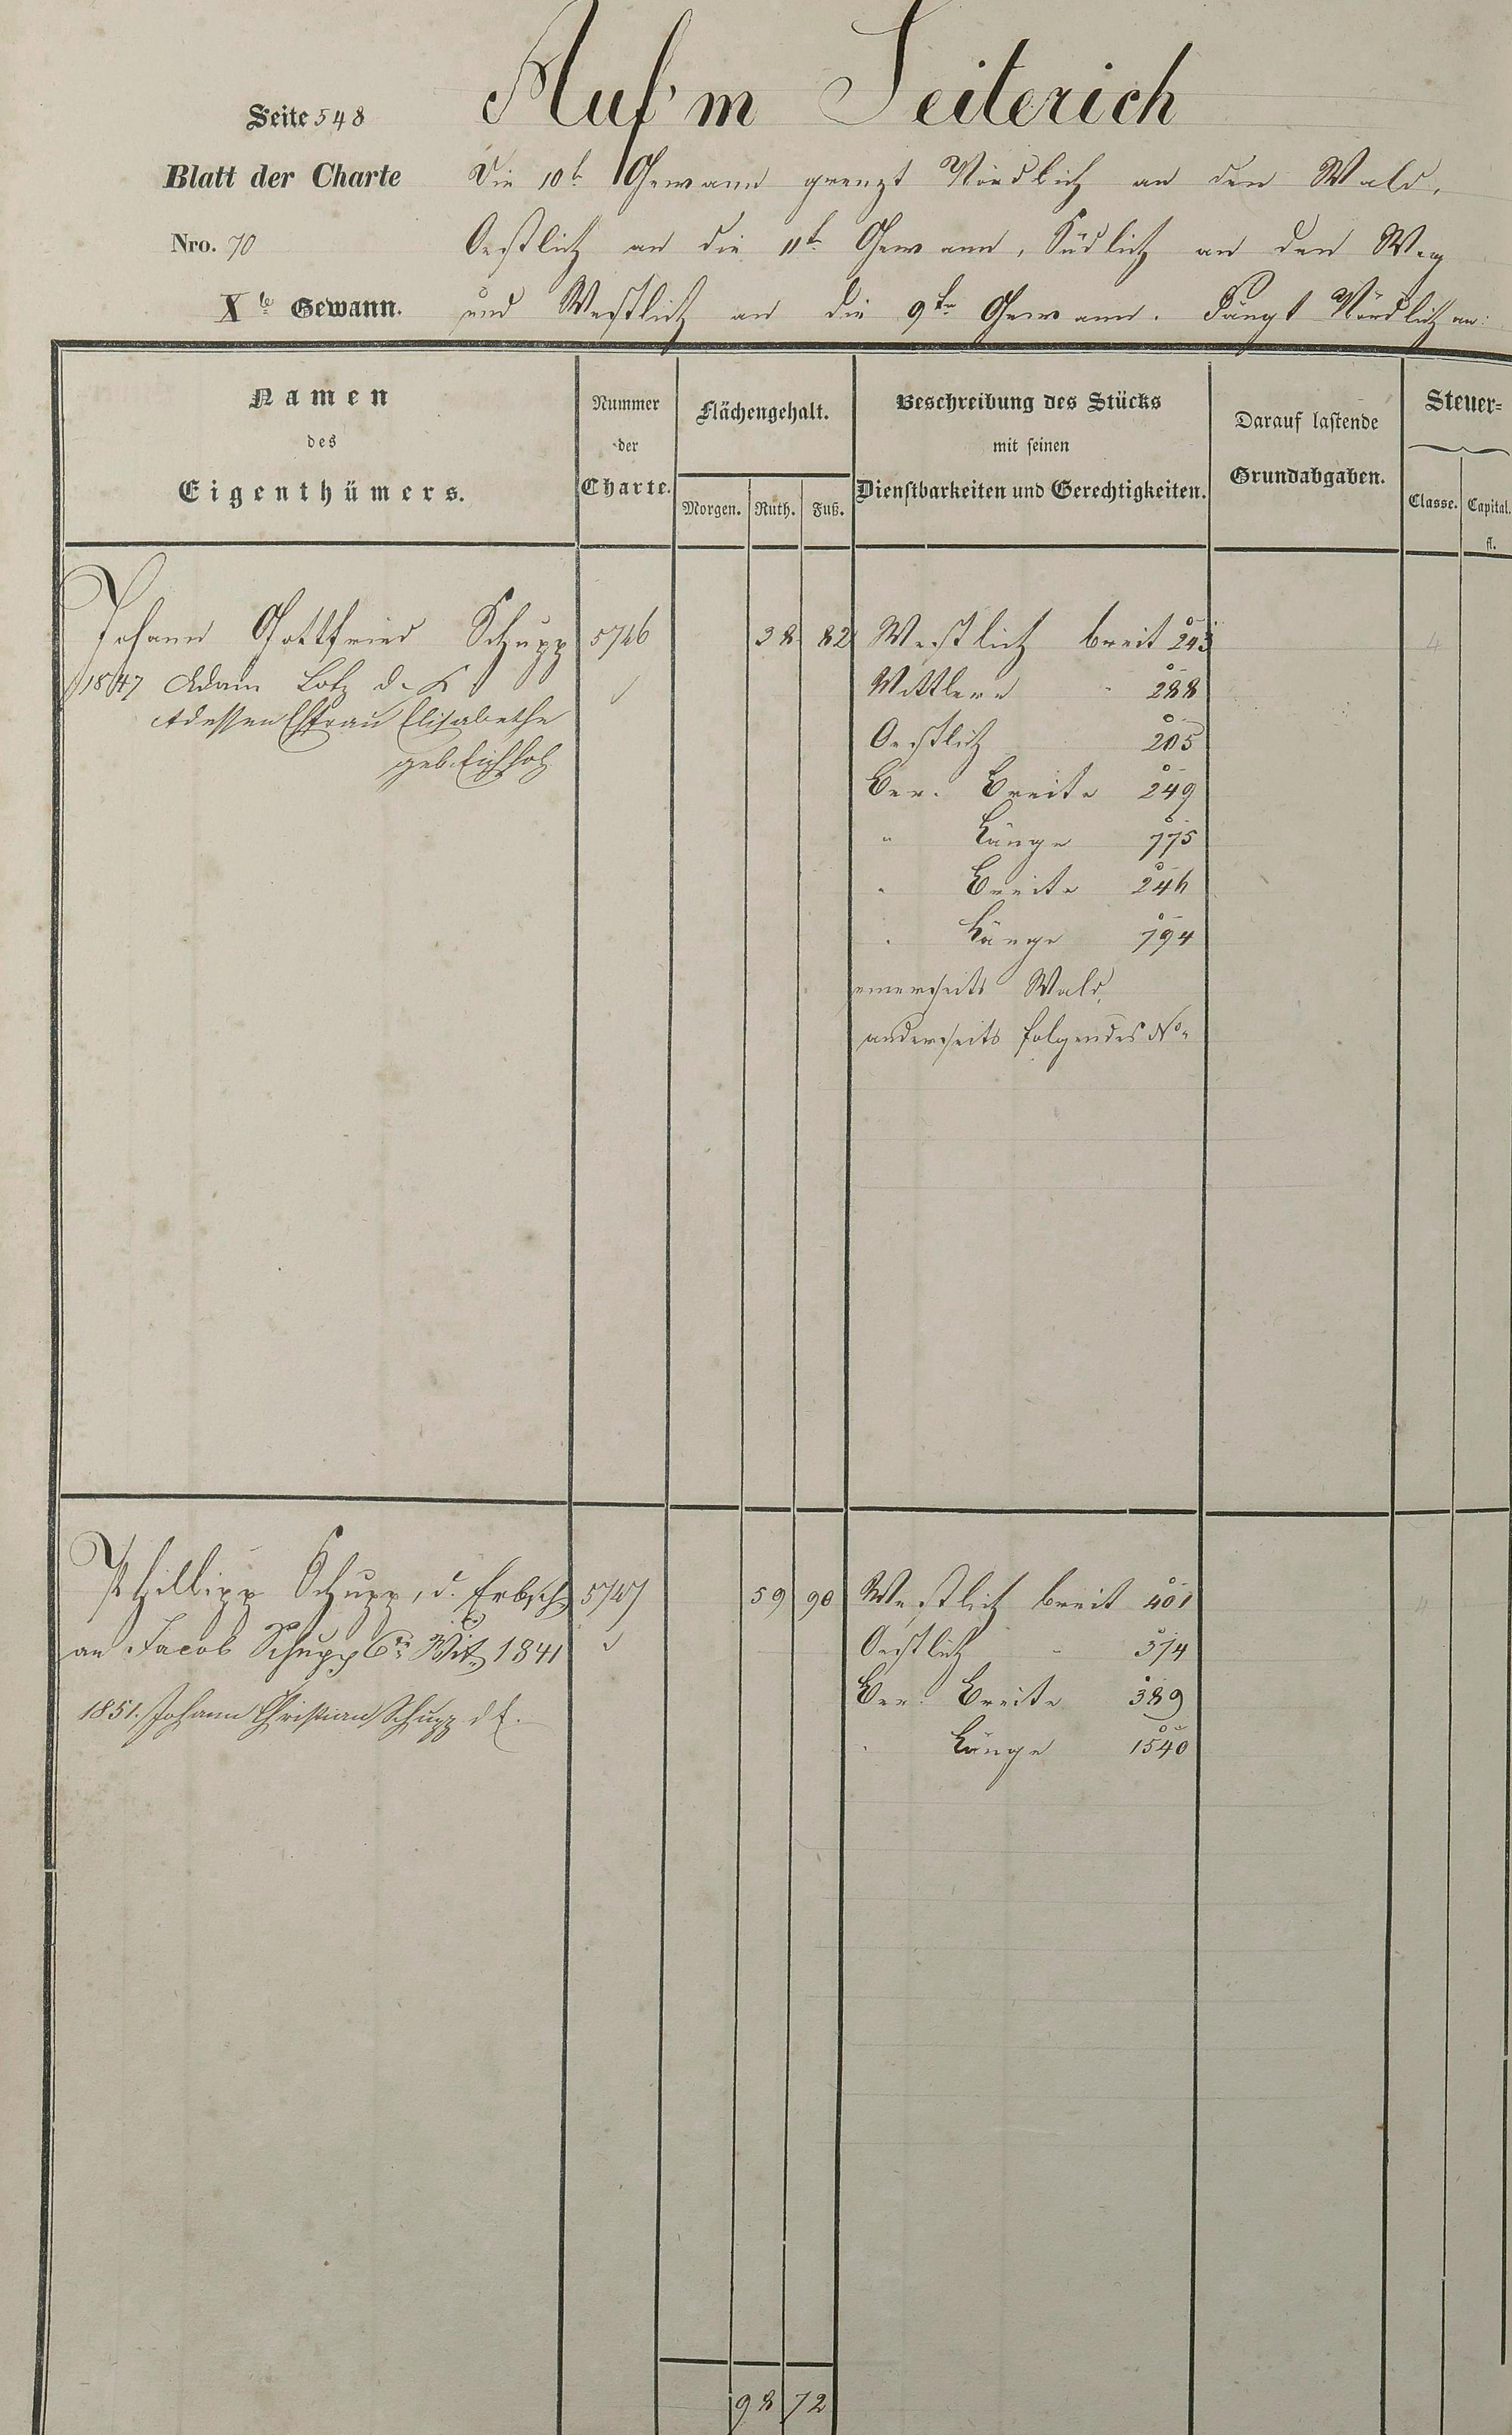 Auf'm Seiterich
Seite 548
Blatt der Charte
Nro. 70
Xte Gewann.
Die 10te Gewann grenzt Nördlich an den Wald,
Oestlich an die 11te Gewann, Südlich an den Weg
und Westlich an die 9te Gewann. Fängt Nördlich an:
Namen
des
Eigenthümers.
Nummer
der
Charte.
Flächengehalt.
Morgen. Ruth. Fuß.
Beschreibung des Stücks
mit seinen
Dienstbarkeiten und Gerechtigkeiten.
Darauf lastende
Grundabgaben.
Steuer=
Classe. Capital.
fl.
Johann Gottfried Schupp 5746 38 82 Westlich breit 243 4
1847 Adam Lotz d. K
dessen Ehfrau Elisabethe
geb. Eichholz
Mittlere " 288
Oestlich 205
Ber. Breite 249
" Länge 775
" Breite 246
" Länge 794
einerseits Wald,
anderseits folgendes No.
Phillipp Schupp, d. Erbsch. 5747 59 90 Westlich breit 401 4
an Jacob Schupp 6r Wit. 1841
1851. Johann Christian Schupp d.
Oestlich " 374
Ber. Breite 389
" Länge 1540
98 72